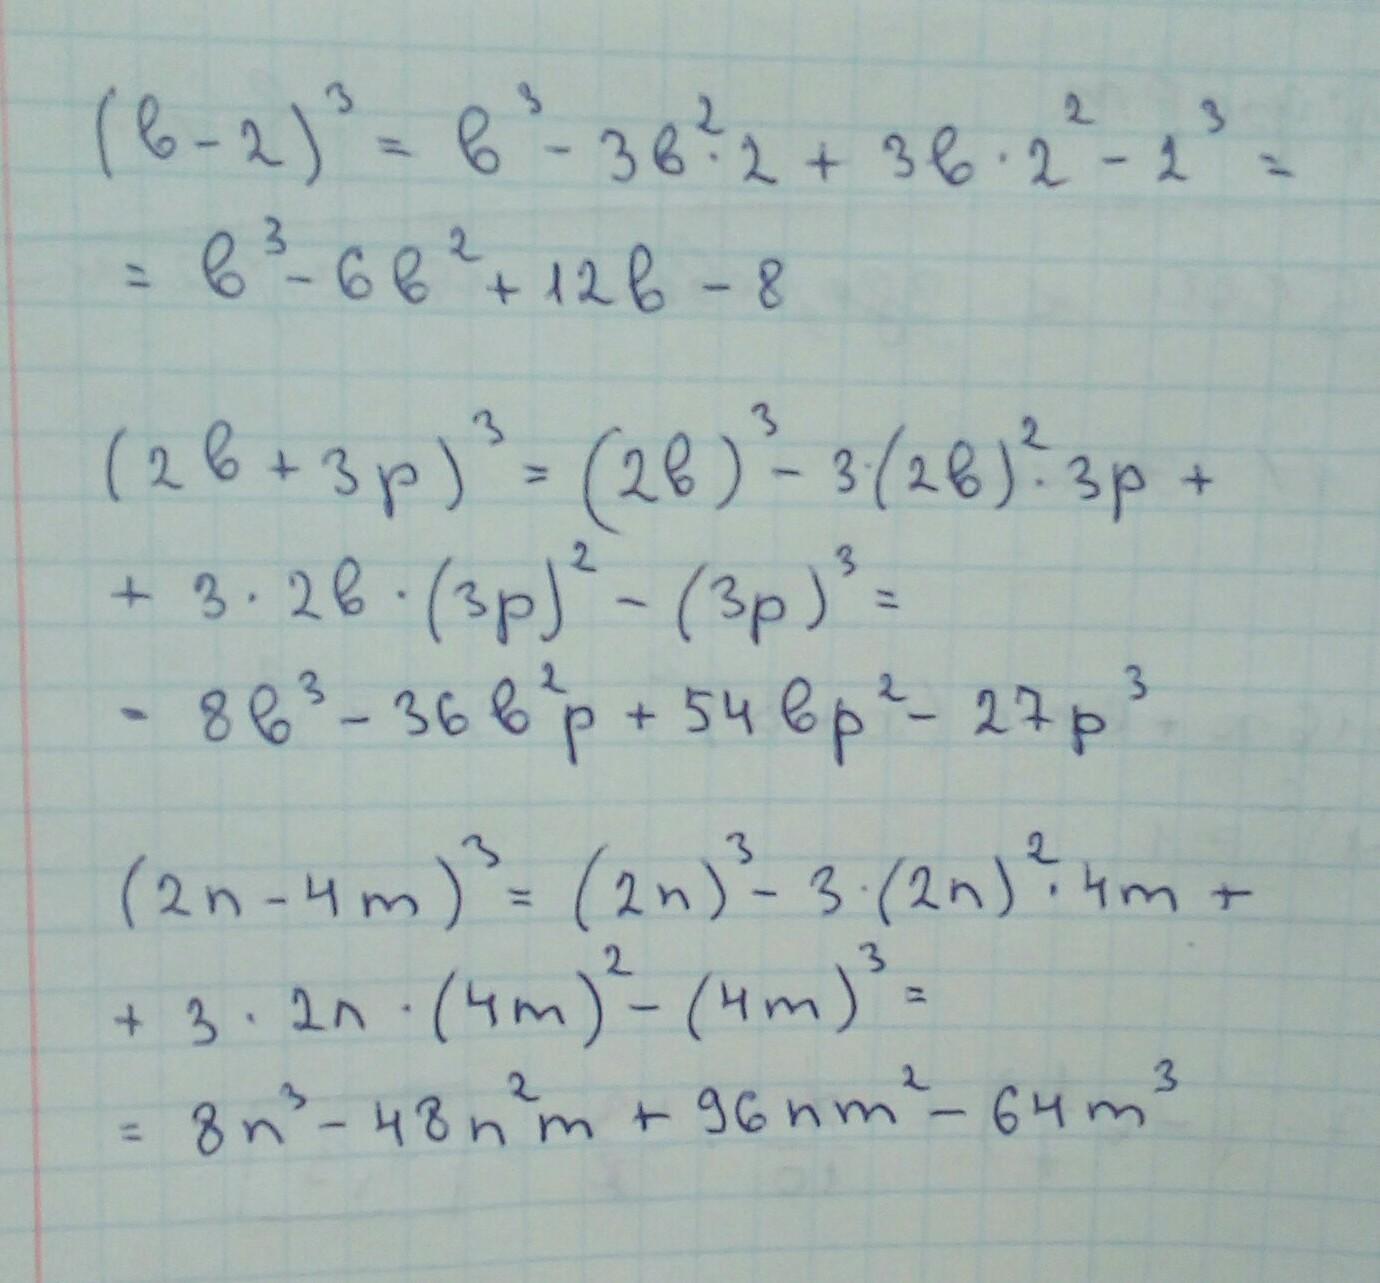 (b - 2)³ = b³ - 3b² · 2 + 3b · 2² - 2³ =
= b³ - 6b² + 12b - 8
(2b + 3p)³ = (2b)³ - 3·(2b)² · 3p +
+ 3 · 2b · (3p)² - (3p)³ =
- 8b³ - 36b²p + 54bp² - 27p³
(2n - 4m)³ = (2n)³ - 3·(2n)² · 4m +
+ 3 · 2n · (4m)² - (4m)³ =
= 8n³ - 48n²m + 96nm² - 64m³